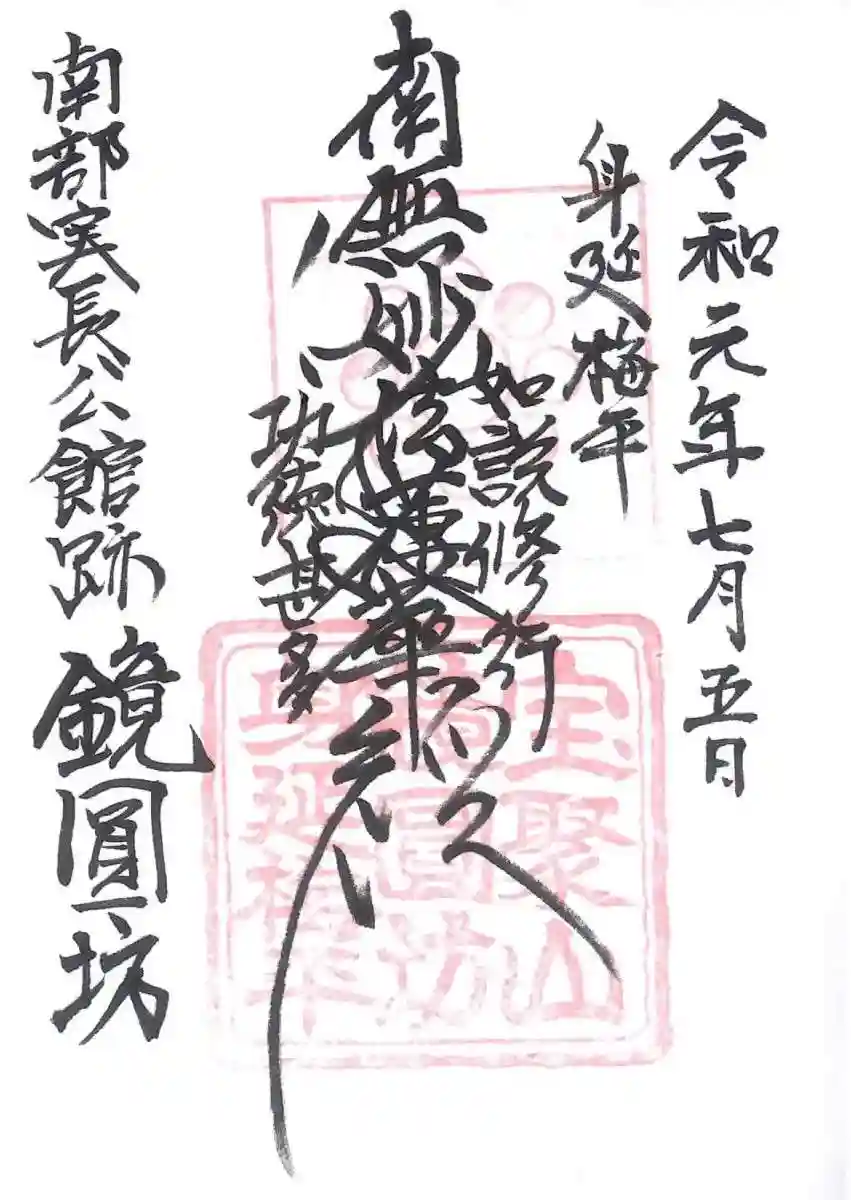 令和元年七月五日
身延梅平
如説修行
南無妙法蓮華経
功徳甚多
南部実長公館跡
鏡圓坊
宝聚山
鏡圓坊
身延梅平